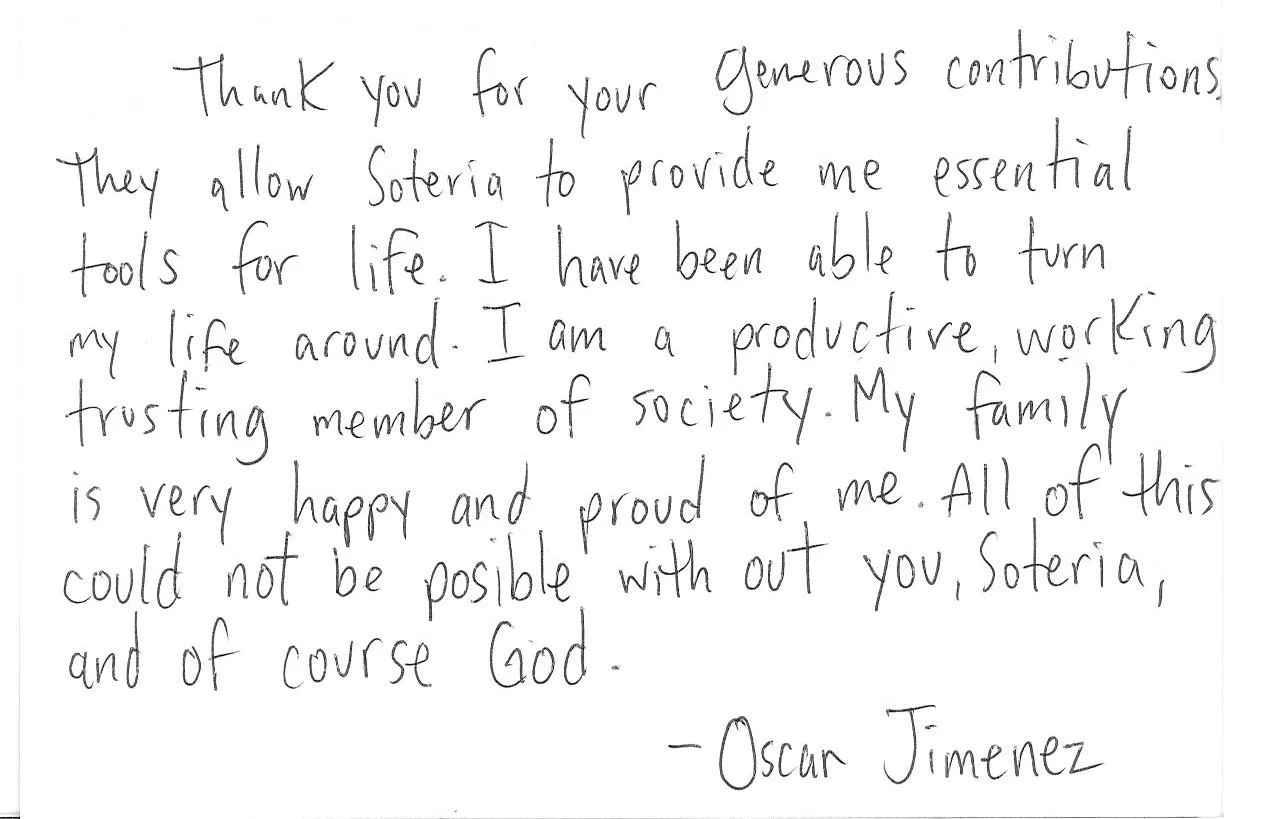 Thank you for your generous contributions.
They allow Soteria to provide me essential
tools for life. I have been able to turn
my life around. I am a productive, working
trusting member of society. My family
is very happy and proud of me. All of this
could not be posible with out you, Soteria,
and of course God.
- Oscar Jimenez